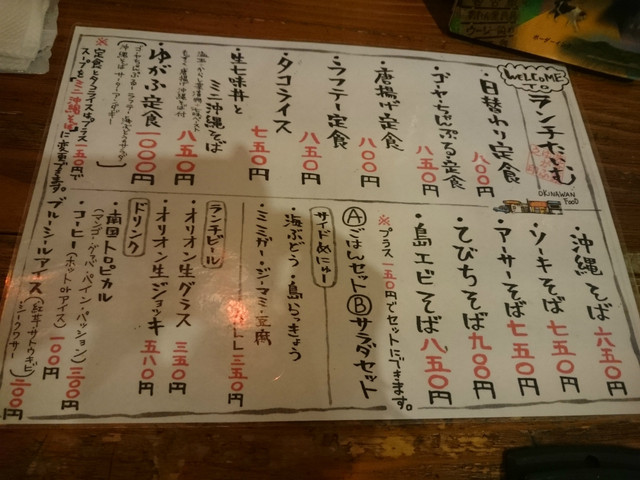 WELCOME
TO
ランチたいむ
OKINAWAN
FOOD
・日替わり定食 八〇〇円
・ゴーヤちゃんぷる定食 八五〇円
・唐揚げ定食 八〇〇円
・ラフテー定食 八五〇円
・タコライス 七五〇円
・生七味丼と
ミニ沖縄そば 八五〇円
・ゆがふ定食 一〇〇〇円
※定食とタコライスはプラス一五〇円で
スープをミニ沖縄そばに変更できます。
・沖縄そば 六五〇円
・ソーキそば 七五〇円
・アーサーそば 七五〇円
・てびちそば 九〇〇円
・島エビそば 八五〇円
※プラス一五〇円でセットにできます。
Ⓐごはんセット Ⓑサラダセット
サイドめにゅー
海ぶどう・島らっきょう
・ミミガー・ジーマミー豆腐
三五〇円
ランチビール
・オリオン生グラス 三五〇円
・オリオン生ジョッキ 五八〇円
ドリンク
・南国トロピカル
(マンゴ・グァバ・パイン・パッション) 三〇〇円
・コーヒー(ホットorアイス) 一〇〇円
ブルーシールアイス(紅芋・サトウキビ
シークワサー) 二〇〇円